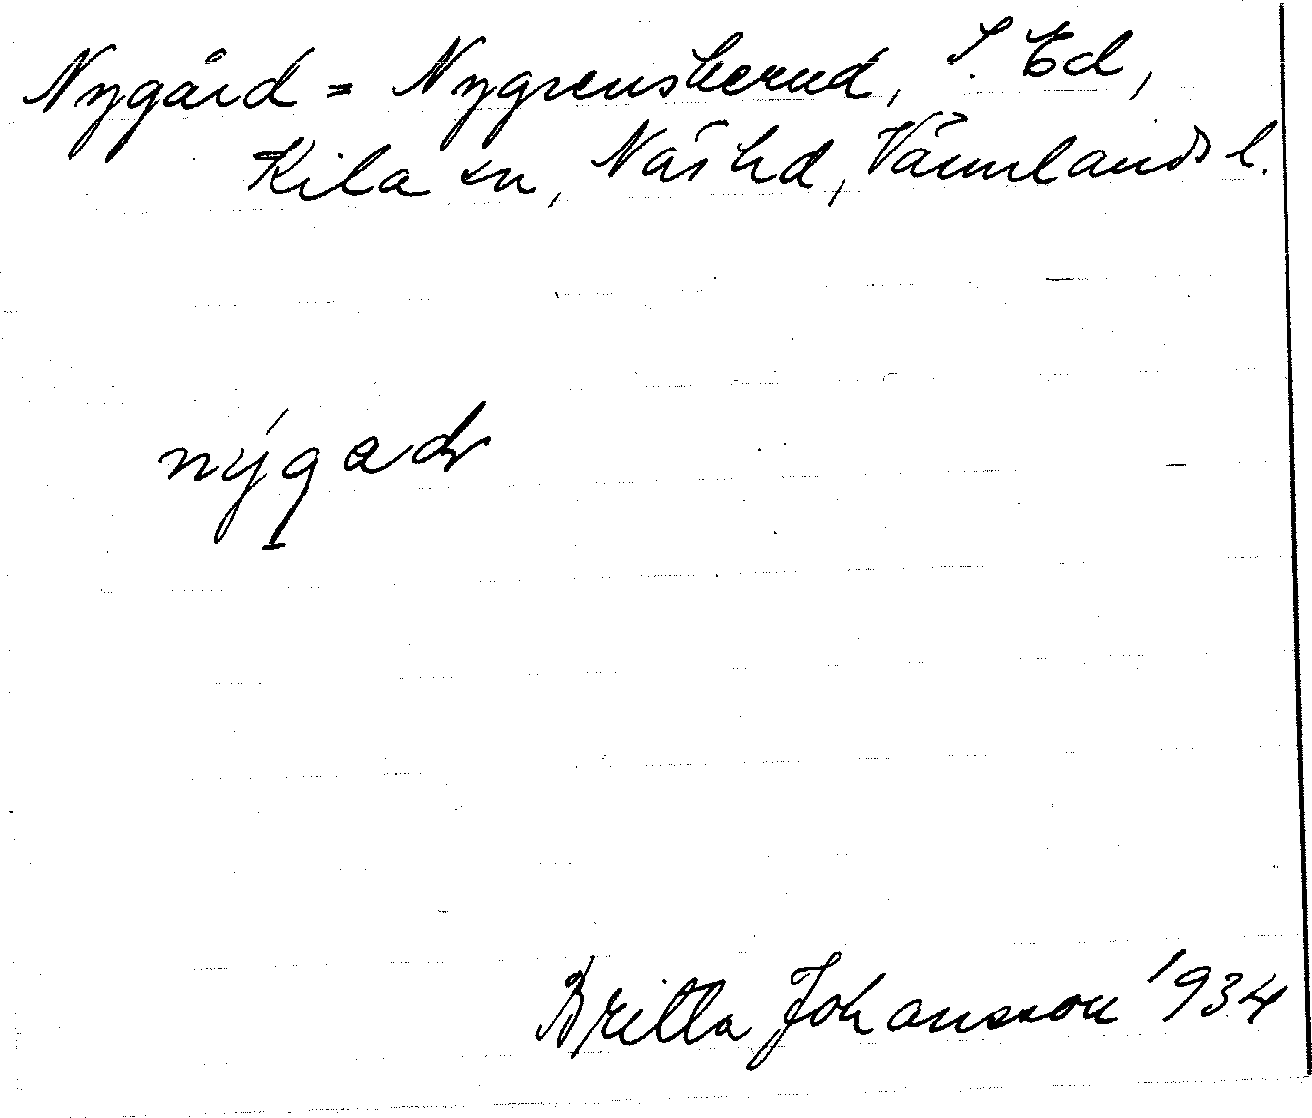 Nygård = Nygrensberud, S. Ed,
Kila sn, Näs hd, Värmlands l.
nýgad
Britta Johansson 1934